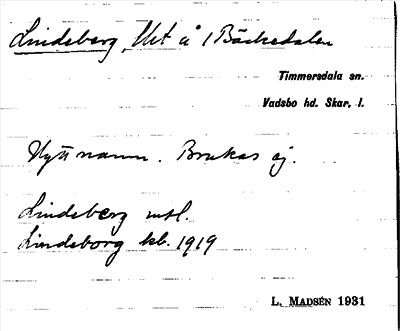 Lindeberg, Utt å 1 Bäckedalen
Timmersdala sn.
Vadsbo hd. Skar. l.
Nytt namn. Brukas ej.
Lindeberg msl.
Lindeborg kb. 1919
L. MADSÉN 1931